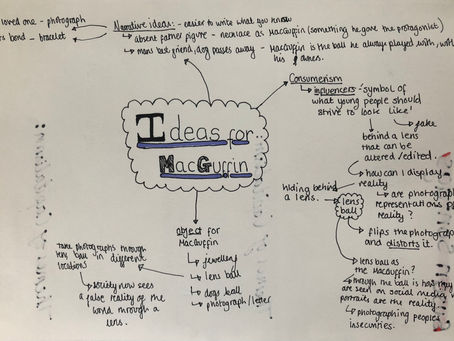 loved one - photograph
s bond - bracelet
Narrative ideas: - easier to write what you know
absent father figure - necklace as MacGuffin (something he gave the protagonist)
mans best friend, dog passes away - MacGuffin is the ball he always played with, with
his owners.
Ideas for
MacGuffin
Consumerism
influencers - symbol of
what young people should
strive to look like'
fake
behind a lens
that can be
altered/edited.
how can I display
reality
are photograp
representations
reality?
Hiding behind
a lens.
lens
ball
flips the photograp
and distorts it.
lens ball as
the MacGuffin?
through the ball is how they
are seen on social media,
portraits are the reality.
photographing peoples
insecurities.
object for
MacGuffin
jewellery
lens ball
dogs ball
photograph/letter
take photographs through
lens ball in different
locations
society now sees
a false reality of the
world through a
lens.